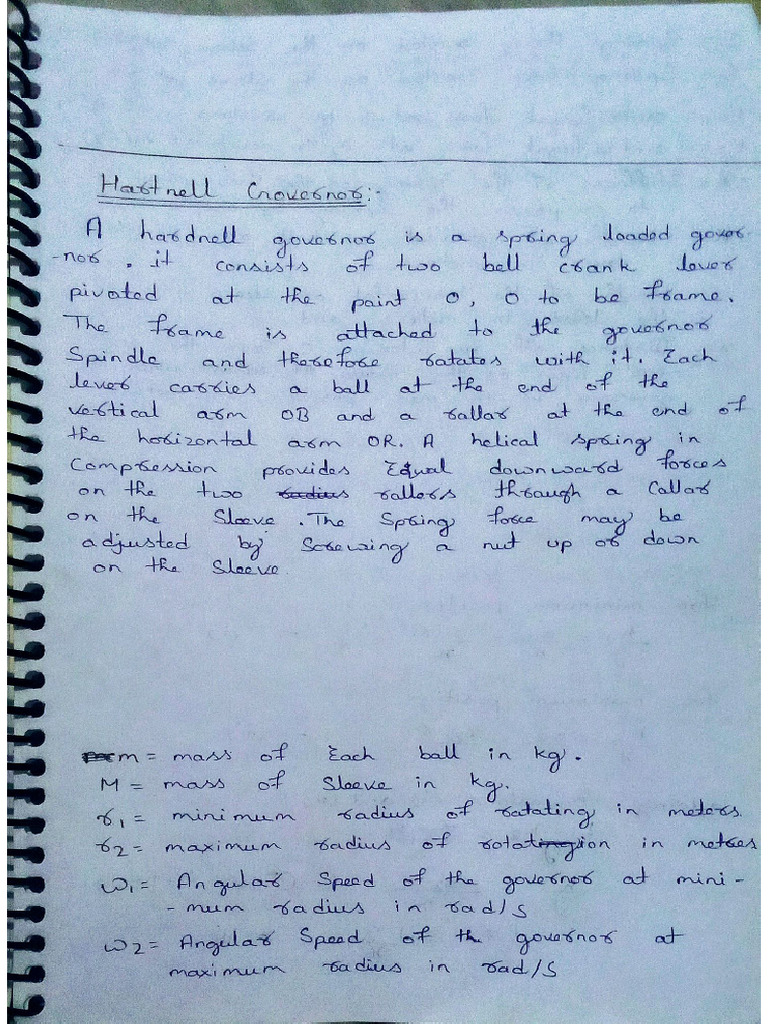 Hartnell Governor:-
A hardnell governor is a spring loaded gover
-nor. it consists of two bell crank lever
pivoted at the paint O, O to be frame.
The frame is attached to the governor
Spindle and therefore ratates with it. Each
lever carries a ball at the end of the
vertical arm OB and a rallar at the end of
the horizontal arm OR. A helical spring in
Compression provides Equal downward forces
on the two radius rallers through a Callar
on the Sleeve. The Spring force may be
adjusted by Screwing a nut up or down
on the Sleeve.
m = mass of Each ball in kg.
M = mass of Sleeve in kg.
r1 = minimum radius of ratating in meters.
r2 = maximum radius of rotation in metres
ω1 = Angular Speed of the governor at mini-
-mum radius in rad/s
ω2 = Angular Speed of the governor at
maximum radius in rad/s